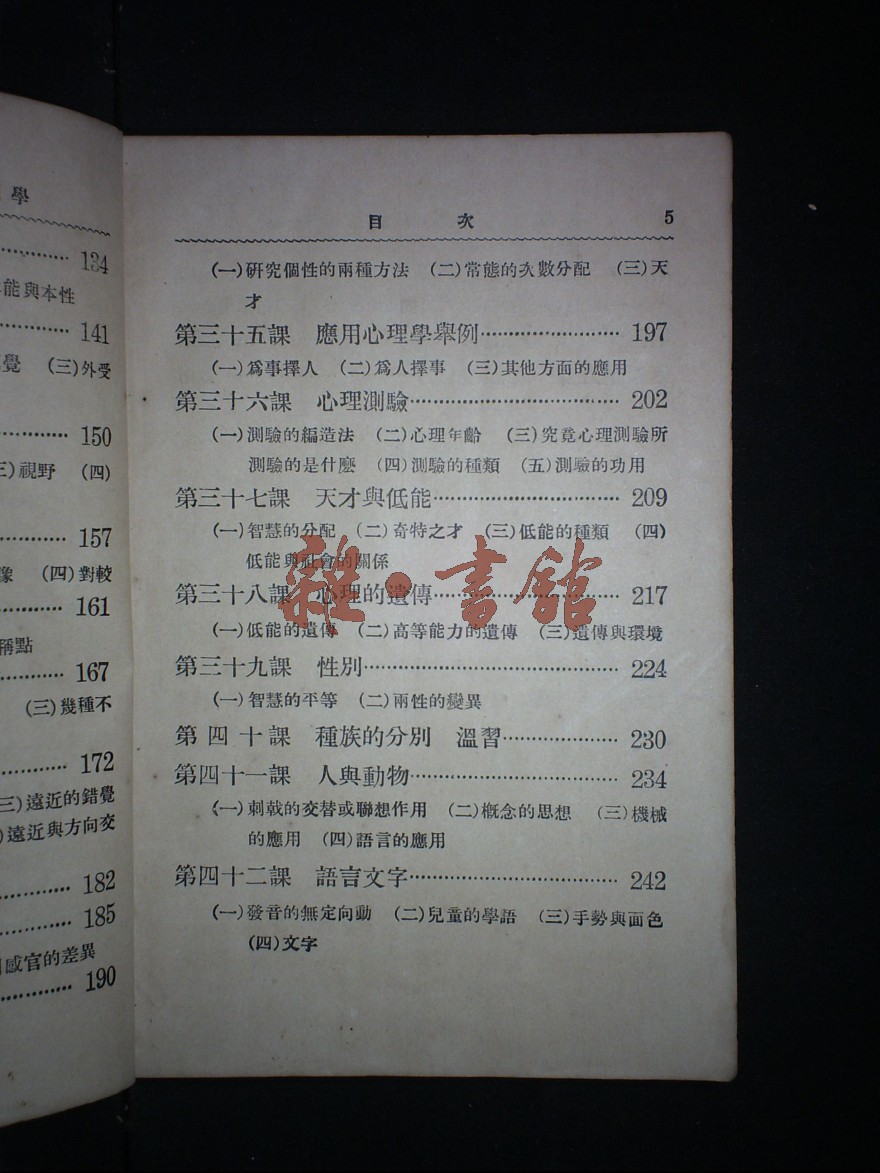 學
134
能與本性
141
覺 (三)外受
150
三)視野 (四)
157
像 (四)對較
161
稱點
167
(三)幾種不
172
三)遠近的錯覺
)遠近與方向交
182
185
感官的差異
190
目次 5
(一)研究個性的兩種方法 (二)常態的次數分配 (三)天
才
第三十五課 應用心理學舉例…………………… 197
(一)爲事擇人 (二)爲人擇事 (三)其他方面的應用
第三十六課 心理測驗…………………………… 202
(一)測驗的編造法 (二)心理年齡 (三)究竟心理測驗所
測驗的是什麼 (四)測驗的種類 (五)測驗的功用
第三十七課 天才與低能………………………… 209
(一)智慧的分配 (二)奇特之才 (三)低能的種類 (四)
低能與社會的關係
第三十八課 心理的遺傳………………………… 217
(一)低能的遺傳 (二)高等能力的遺傳 (三)遺傳與環境
第三十九課 性別………………………………… 224
(一)智慧的平等 (二)兩性的變異
第四十課 種族的分別 溫習………………… 230
第四十一課 人與動物…………………………… 234
(一)刺戟的交替或聯想作用 (二)概念的思想 (三)機械
的應用 (四)語言的應用
第四十二課 語言文字…………………………… 242
(一)發音的無定向動 (二)兒童的學語 (三)手勢與面色
(四)文字
雜·書館